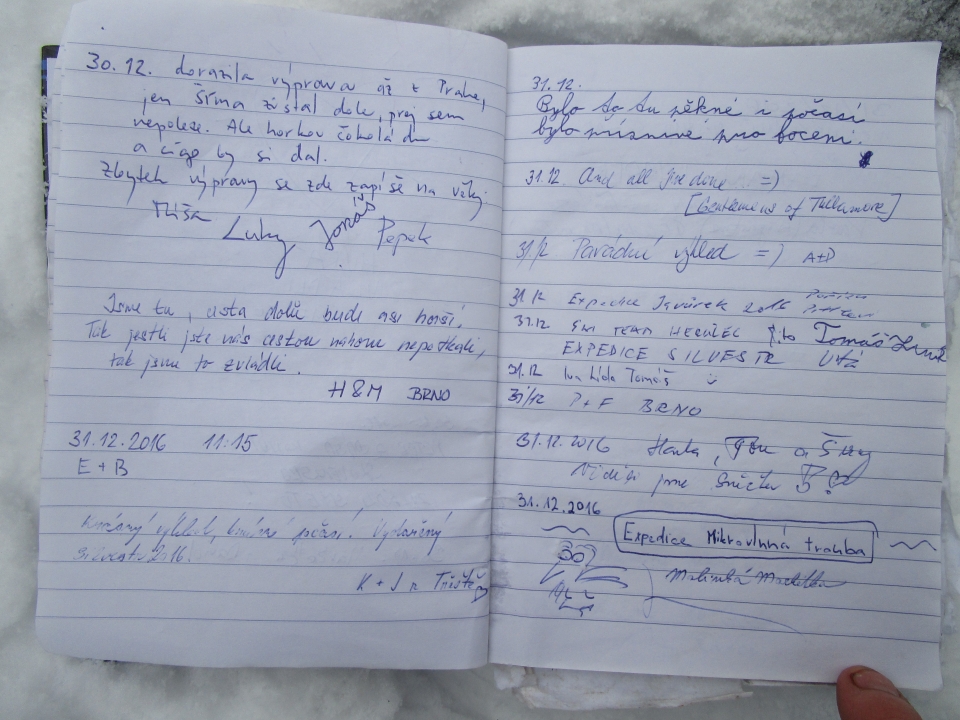 30.12. dorazila výprava až z Prahe,
jen Šíma zůstal dole, prej sem
nepoleze. Ale horkou čokoládu
a cígo by si dal.
Zbytek výpravy se zde zapíše na vžky.
Míša Luky Jonáš Pepek
Jsme tu, cesta dolů bude asi horší.
Tak jestli jste nás cestou nahoru nepotkali,
tak jsme to zvládli.
H&M BRNO
31.12.2016 11:15
E + B
výhled, počasí. Vydařený
Silvestr 2016.
K + J z
31.12.
Bylo to tu pěkné i počasí
bylo příznivé pro focení.
31.12. And all fine done =)
[Gentlemens of Tullamore]
31/12 Parádní výhled =) A+D
31.12 Expedice Javůrek 2016
31.12 TEAM Tomáš
EXPEDICE SILVESTR
31.12 Iva Lída Tomáš
31/12 P+F BRNO
31.12.2016 Hanka, a
Viděli jsme
31.12.2016
Expedice Mikrovlnná trouba